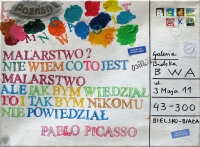 Poznań
MALARSTWO?
NIE WIEM CO TO JEST
MALARSTWO
ALE JAK BYM WIEDZIAŁ
TO I TAK BYM NIKOMU
NIE POWIEDZIAŁ
PABLO PICASSO
Galeria
Bielska
BWA
ul.
3 Maja 11
43-300
BIELSKO-BIAŁA